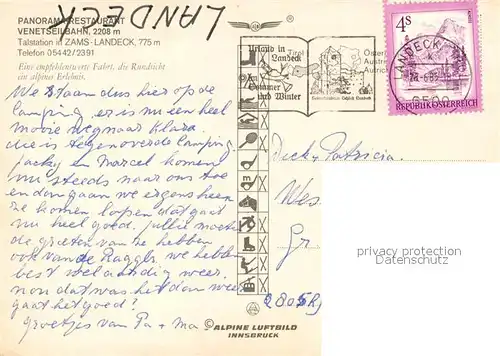 LANDECK
PANORAMARESTAURANT
VENETSEILBAHN, 2208 m
Talstation in ZAMS-LANDECK, 775 m
Telefon 05442/2391
Eine empfehlenswerte Fahrt, die Rundsicht
ein alpines Erlebnis.
We staan dus hier op de
camping er is nu een heel
mooie weg naar Klara.
die is tegenover de camping
Jacky en Marcel komen
nu steeds naar ons toe
en dan gaan we ergens heen
te komen lopen dat gaat
nu heel goed. jullie moeten
de groeten van ze hebben
ook van de we hebben
best wel aardig weer.
nou dat was het dan weer
gaat het goed?
groetjes van Pa + ma
Urlaub in
Landeck
Tirol
Sommer
und Winter
4S
REPUBLIK ÖSTERREICH
LANDECK
6500
Dick + Patricia
Wes
Gr
2805 RJ
privacy protection
Datenschutz
© ALPINE LUFTBILD
INNSBRUCK